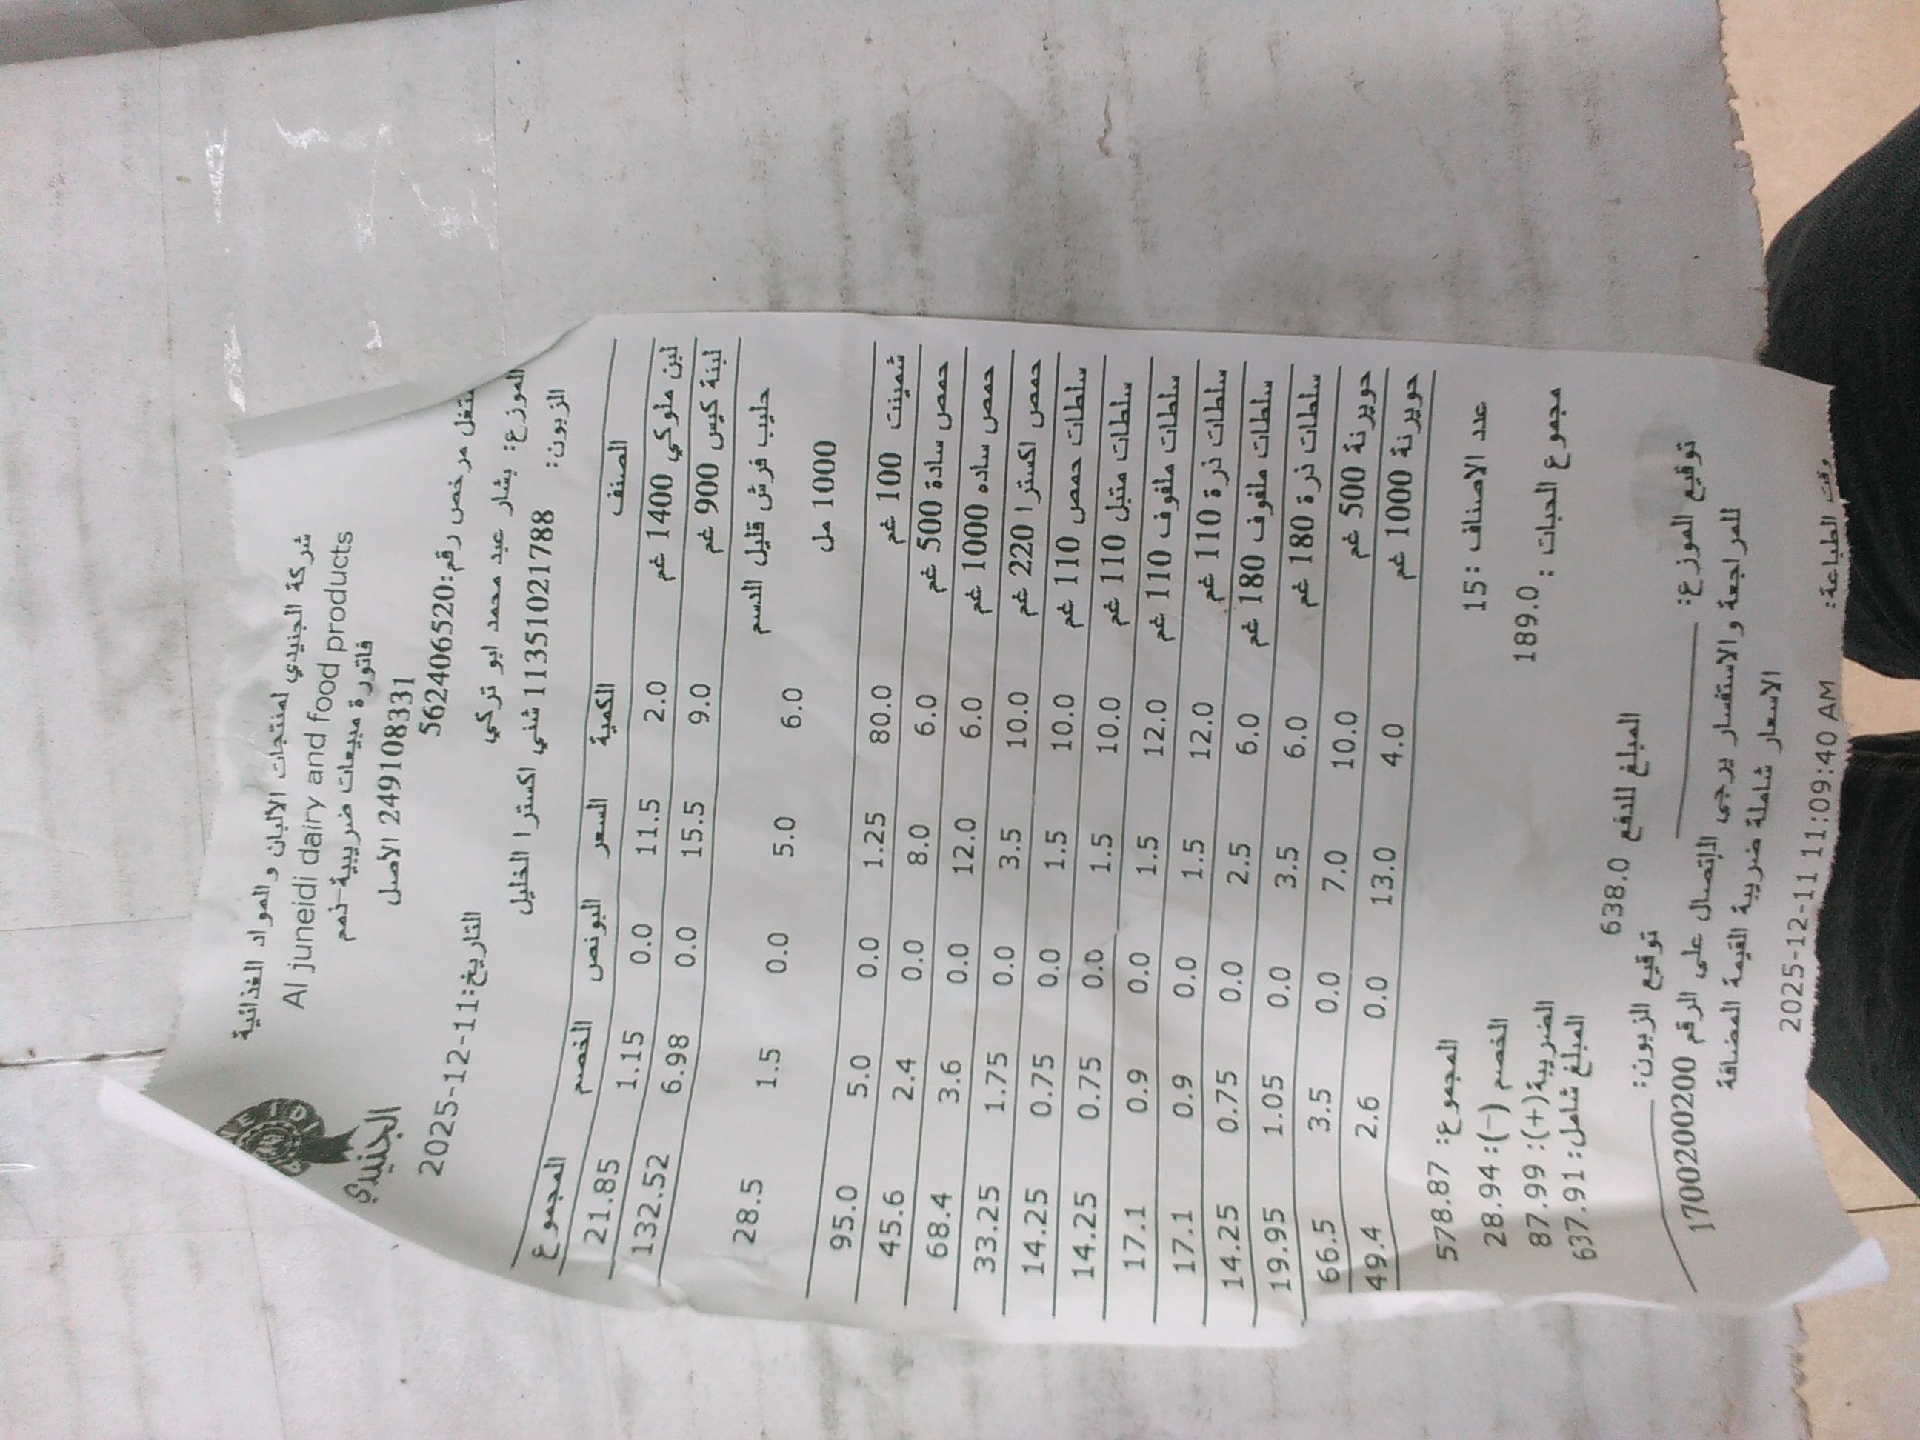 شركة الجنيدي لمنتجات الالبان والمواد الغذائية
Al juneidi dairy and food products
فاتورة مبيعات ضريبية-ذمم
249108331 الاصل
الجنيدي
مشتغل مرخص رقم:562406520
التاريخ:2025-12-11
الموزع: بشار عبد محمد ابو تركي
الزبون: 1135102101788 شني اكسترا الخليل
الصنف الكمية السعر البونص الخصم المجموع
لبن ملوكي 1400 غم 2.0 11.5 0.0 1.15 21.85
لبنة كيس 900 غم 9.0 15.5 0.0 6.98 132.52
حليب فرش قليل الدسم 6.0 5.0 0.0 1.5 28.5
1000 مل
شمينت 100 غم 80.0 1.25 0.0 5.0 95.0
حمص سادة 500 غم 6.0 8.0 0.0 2.4 45.6
حمص ساده 1000 غم 6.0 12.0 0.0 3.6 68.4
حمص اكسترا 220 غم 10.0 3.5 0.0 1.75 33.25
سلطات حمص 110 غم 10.0 1.5 0.0 0.75 14.25
سلطات متبل 110 غم 10.0 1.5 0.0 0.75 14.25
سلطات ملفوف 110 غم 12.0 1.5 0.0 0.9 17.1
سلطات ذرة 110 غم 12.0 1.5 0.0 0.9 17.1
سلطات ملفوف 180 غم 6.0 2.5 0.0 0.75 14.25
سلطات ذرة 180 غم 6.0 3.5 0.0 1.05 19.95
حويرنة 500 غم 10.0 7.0 0.0 3.5 66.5
حويرنة 1000 غم 4.0 13.0 0.0 2.6 49.4
عدد الاصناف :15 المجموع: 578.87
مجموع الحبات : 189.0 الخصم (-): 28.94
الضريبة(+): 87.99
المبلغ شامل: 637.91
المبلغ للدفع 638.0
توقيع الموزع: توقيع الزبون:
للمراجعة والاستفسار يرجى الإتصال على الرقم 1700200200
الاسعار شاملة ضريبة القيمة المضافة
وقت الطباعة: 2025-12-11 11:09:40 AM